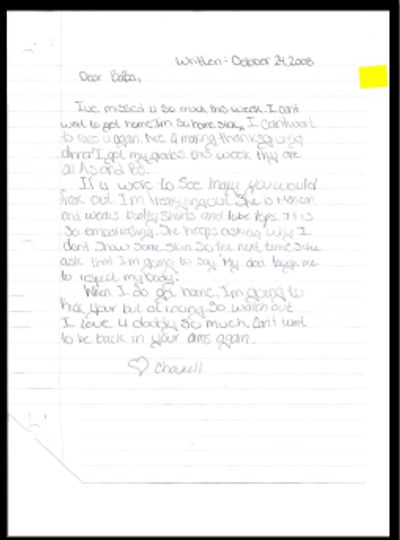 Written: October 24, 2008
Dear Baba,
I've missed u so much this week. I cant
wait to get home. Im so home sick, I cant wait
to race u again. Me & making thanksgiving
dinna! I got my grades this week they are
all As and Bs.
If u were to see you would
freak out. I'm freaking out. She is
and wears booty shorts and tube tops. It is
so embarrasing. She keeps asking why I
dont show some skin. So the next time she
ask that I'm going to say "My dad taugh me
to respect my body."
When I do get home, I'm going to
kick your but at racing. So watch out
I love u daddy so much. Can't wait
to be back in your arms again.